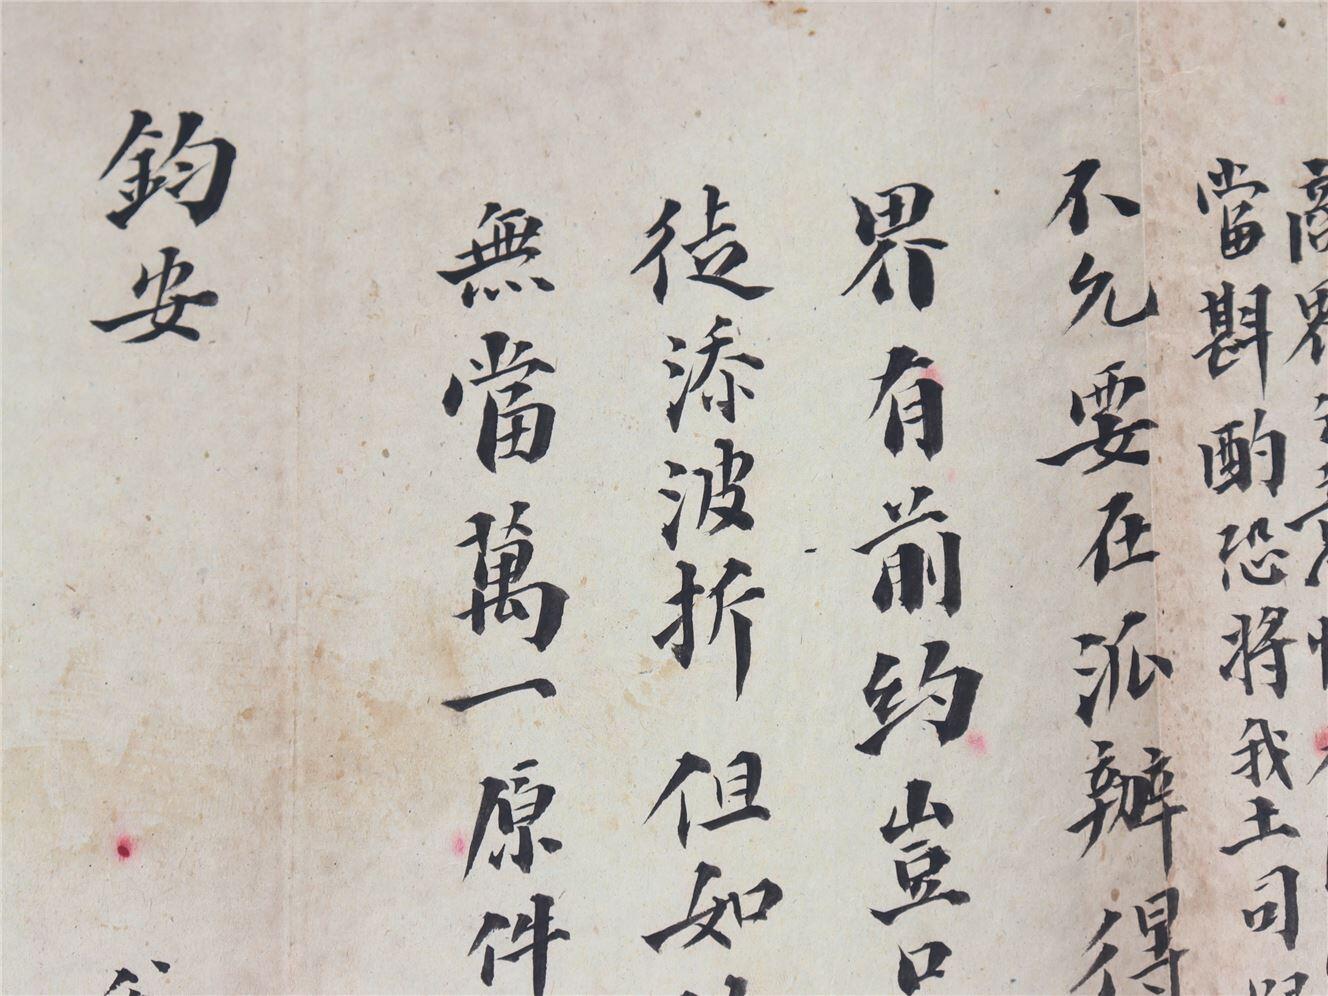 商界
當斟酌恐將我土司
不允要在派辦得
界有前約豈口
徒添波折但如
無當萬一原件
鈞安